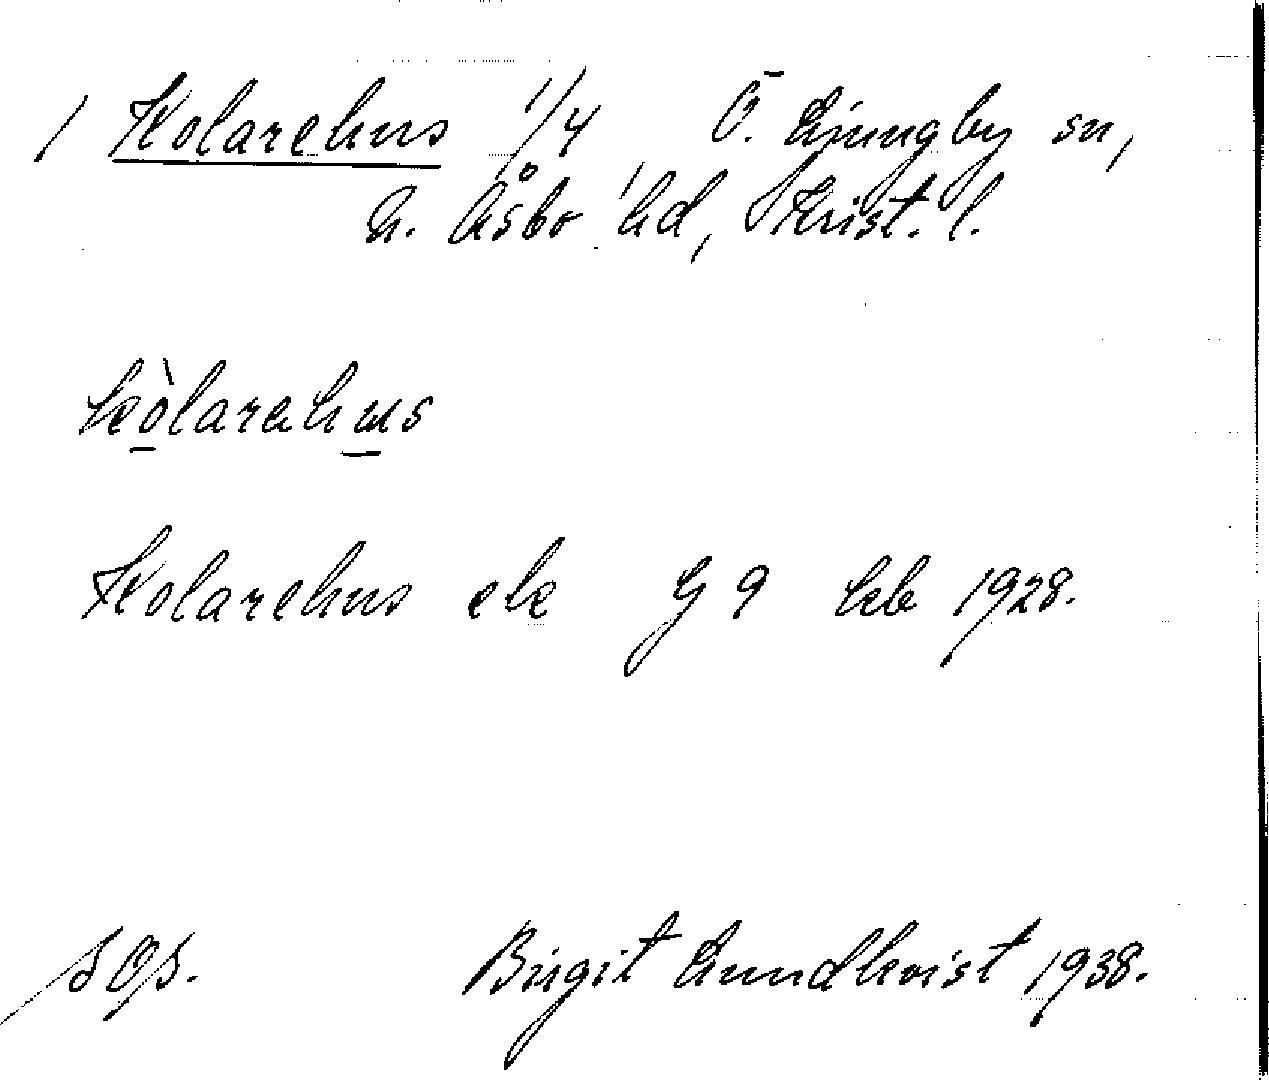 / Kolarehus 1/4 Ö. Ljungby sn,
N. Åsbo hd, Krist. l.
kòlarahus
Kolarehus ek G 9 kb 1928.
SOf.
Birgit Lundkvist 1938.